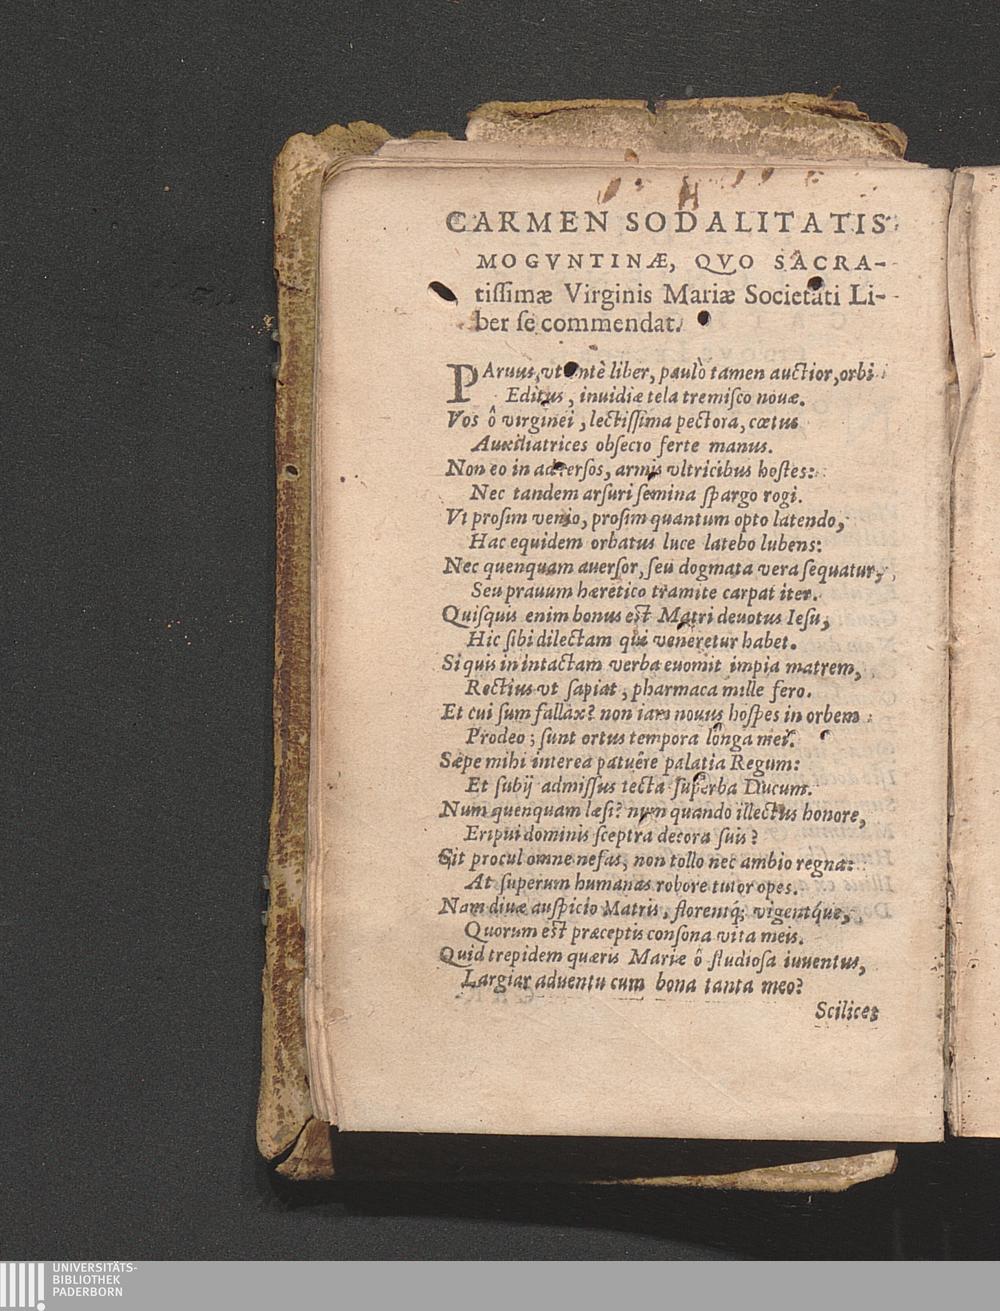 CARMEN SODALITATIS
MOGVNTINÆ, QVO SACRA-
tiſſimæ Virginis Mariæ Societati Li-
ber ſe commendat.
PAruus, vt antè liber, paulò tamen auctior, orbi
Editus, inuidiæ tela tremiſco nouæ.
Vos ô virginei, lectiſſima pectora, cœtus
Auxiliatrices obſecro ferte manus.
Non eo in aduerſos, armis vltricibus hoſtes:
Nec tandem arſuri ſemina ſpargo rogi.
Vt proſim venio, proſim quantum opto latendo,
Hac equidem orbatus luce latebo lubens:
Nec quenquam auerſor, ſeu dogmata vera ſequatur,
Seu prauum hæretico tramite carpat iter.
Quiſquis enim bonus eſt Matri deuotus Ieſu,
Hic ſibi dilectam qui veneretur habet.
Si quis in intactam verba euomit impia matrem,
Rectius vt ſapiat, pharmaca mille fero.
Et cui ſum fallax? non iam nouus hoſpes in orbem
Prodeo; ſunt ortus tempora longa mei.
Sæpe mihi interea patuêre palatia Regum:
Et ſubij admiſſus tecta ſuperba Ducum.
Num quenquam læſi? num quando illectus honore,
Eripui dominis ſceptra decora ſuis?
Sit procul omne nefas, non tollo nec ambio regna:
At ſuperum humanas robore tutor opes.
Nam diuæ auſpicio Matris, florentq́; vigentq́ue,
Quorum eſt præceptis conſona vita meis.
Quid trepidem quæris Mariæ ô ſtudioſa iuuentus,
Largiar aduentu cum bona tanta meo?
Scilicet
UNIVERSITÄTS-
BIBLIOTHEK
PADERBORN